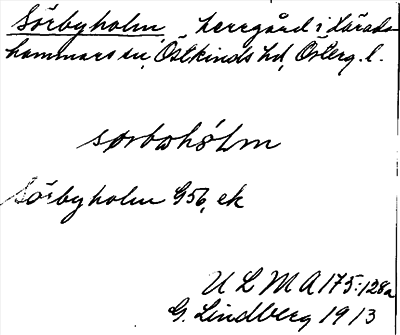 Sörbyholm, herregård i Härads-
hammars sn, Östkinds hd, Österg. l.
sørbohólm
Sörbyholm G56, ek
U L M A 175:128a
G. Lindberg 1913